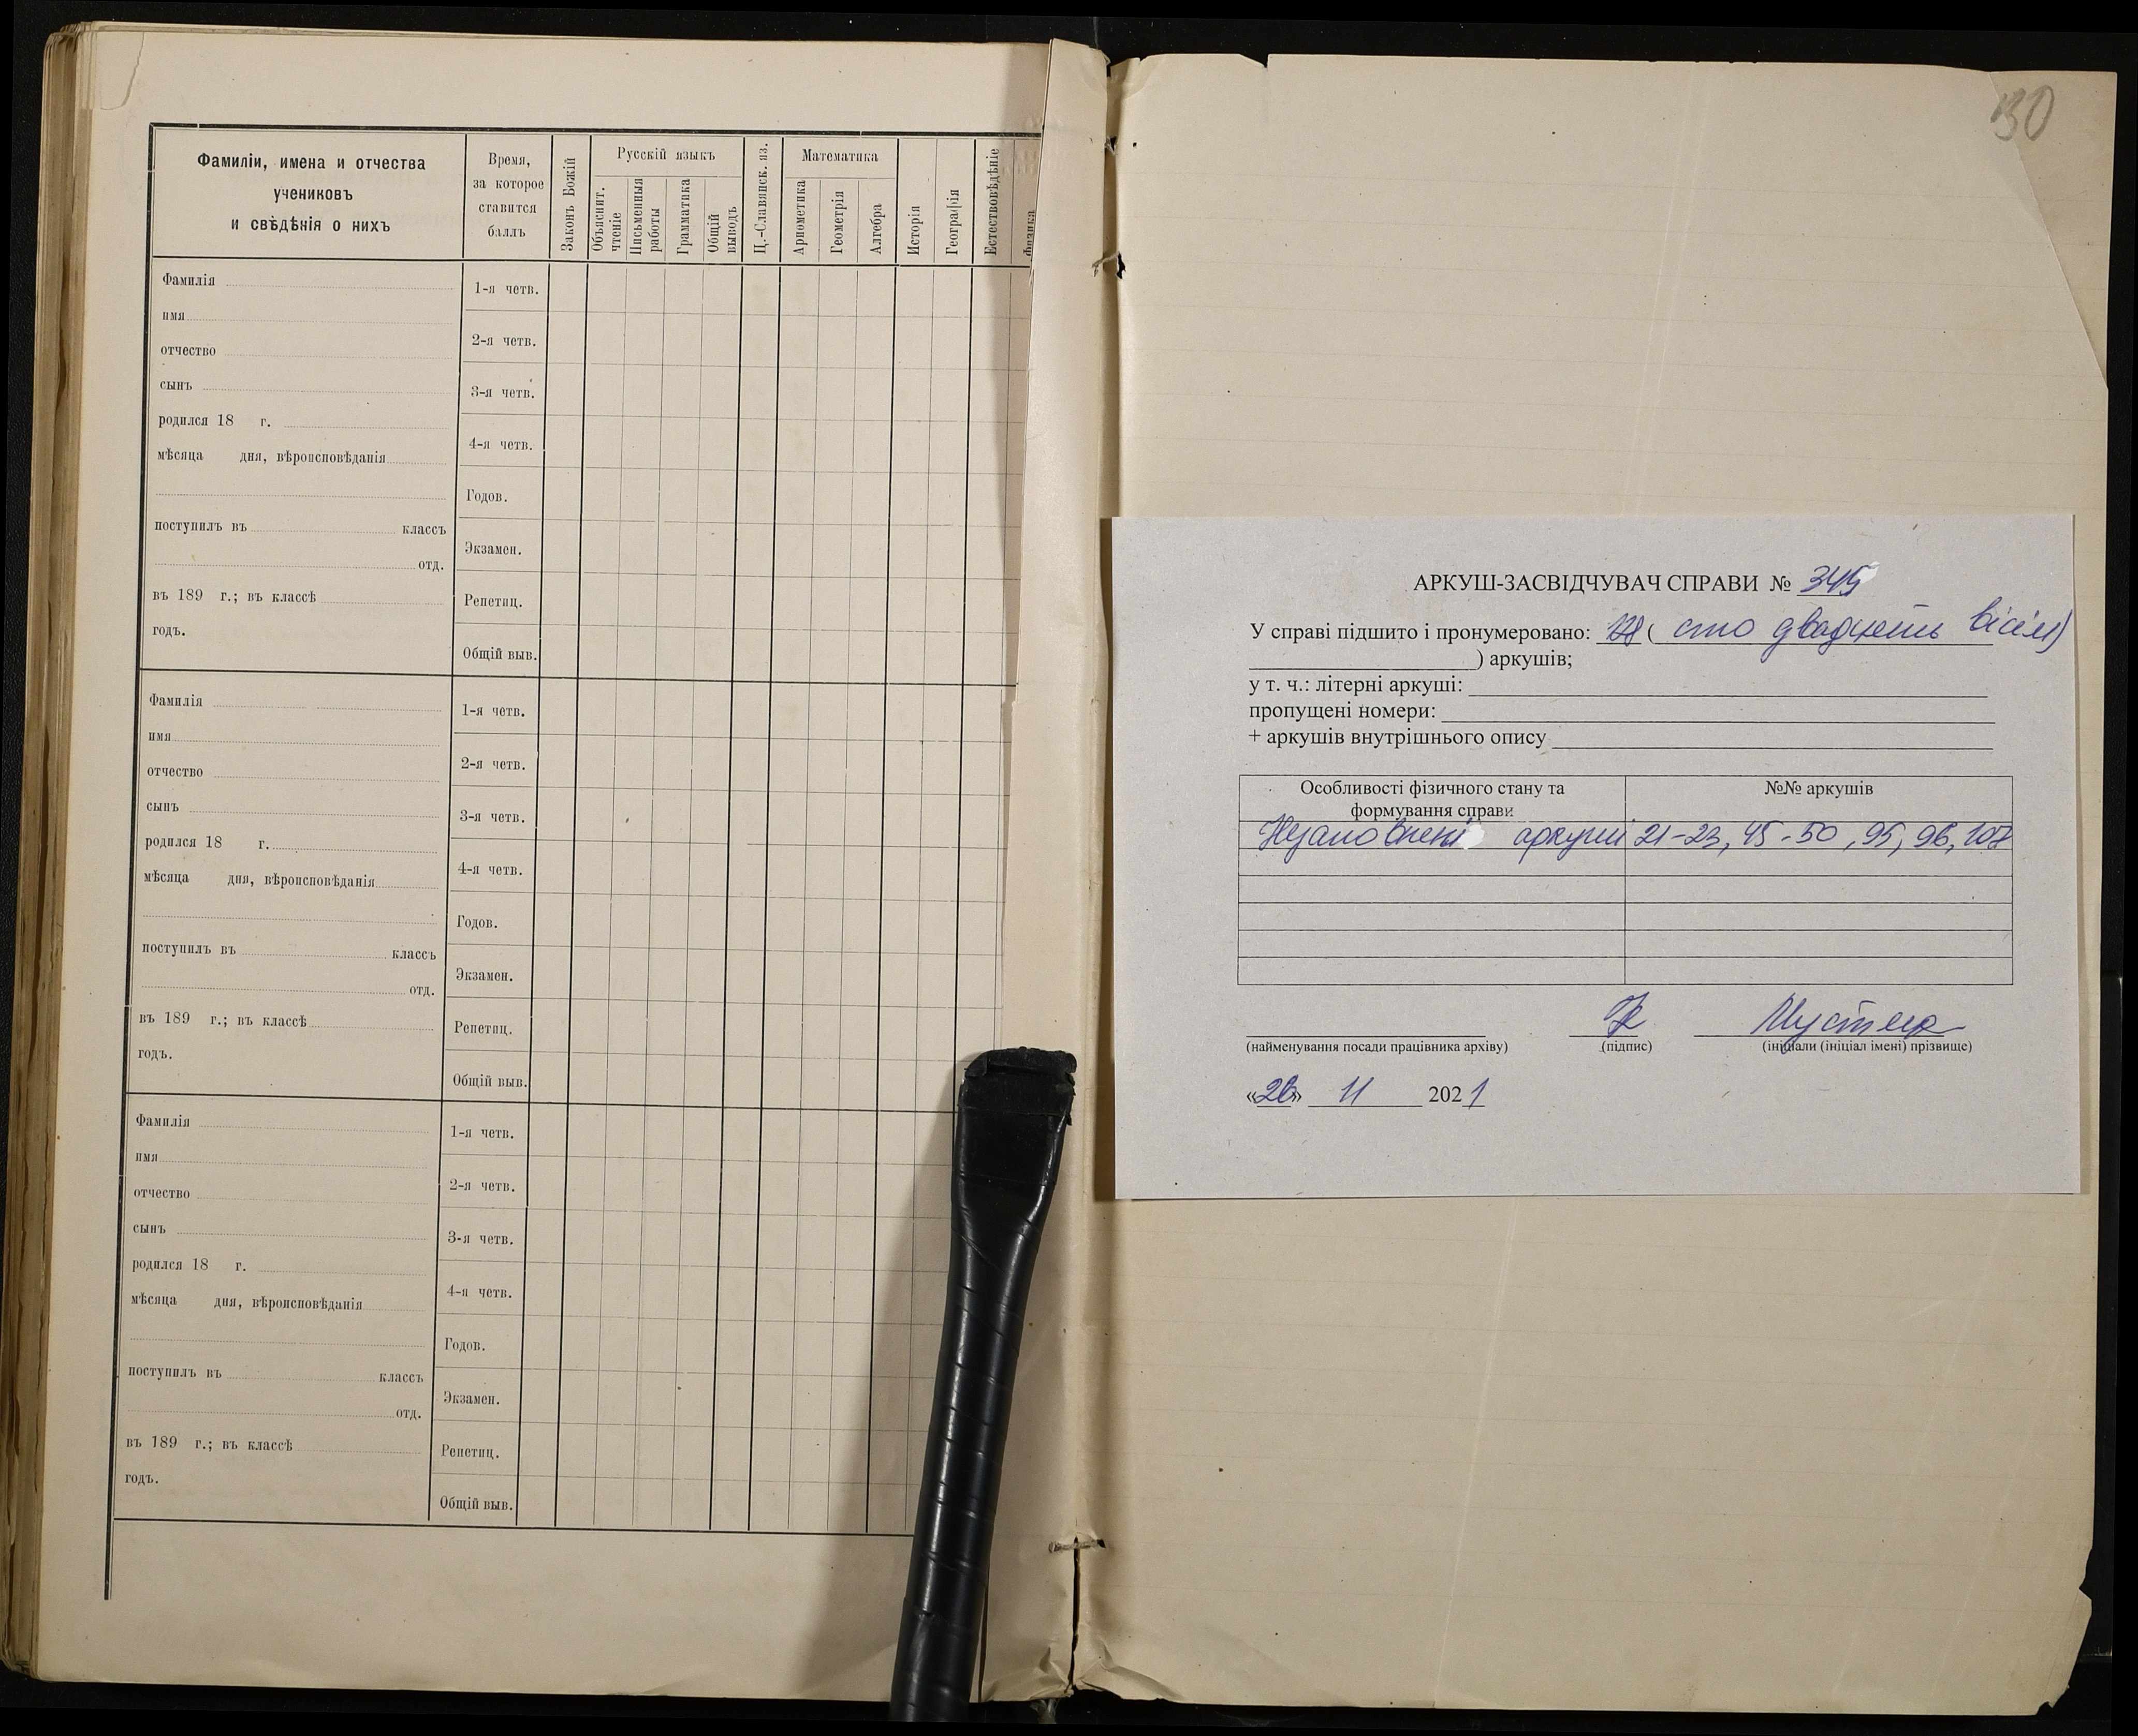 Фамиліи, имена и отчества
учениковъ
и свѣдѣнія о нихъ
Время,
за которое
ставится
баллъ
Законъ Божій
Русскій языкъ
Объяснит. чтеніе
Письменныя работы
Грамматика
Общій выводъ
Ц.-Славянск. яз.
Математика
Ариѳметика
Геометрія
Алгебра
Исторія
Географія
Естествовѣдѣніе
Физика
Фамилія
имя
отчество
сынъ
родился 18 г.
мѣсяца дня, вѣроисповѣданія
поступилъ въ классъ
отд.
въ 189 г.; въ классѣ
годъ.
1-я четв.
2-я четв.
3-я четв.
4-я четв.
Годов.
Экзамен.
Репетиц.
Общій выв.
Фамилія
имя
отчество
сынъ
родился 18 г.
мѣсяца дня, вѣроисповѣданія
поступилъ въ классъ
отд.
въ 189 г.; въ классѣ
годъ.
1-я четв.
2-я четв.
3-я четв.
4-я четв.
Годов.
Экзамен.
Репетиц.
Общій выв.
Фамилія
имя
отчество
сынъ
родился 18 г.
мѣсяца дня, вѣроисповѣданія
поступилъ въ классъ
отд.
въ 189 г.; въ классѣ
годъ.
1-я четв.
2-я четв.
3-я четв.
4-я четв.
Годов.
Экзамен.
Репетиц.
Общій выв.
АРКУШ-ЗАСВІДЧУВАЧ СПРАВИ № 345
У справі підшито і пронумеровано: 128 ( сто двадцять вісім)
) аркушів;
у т. ч.: літерні аркуші:
пропущені номери:
+ аркушів внутрішнього опису
Особливості фізичного стану та
формування справи
№№ аркушів
Незаповнені аркуші 21-23, 45-50, 95, 96, 107
(найменування посади працівника архіву) (підпис) (ініціали (ініціал імені) прізвище)
«26» 11 2021